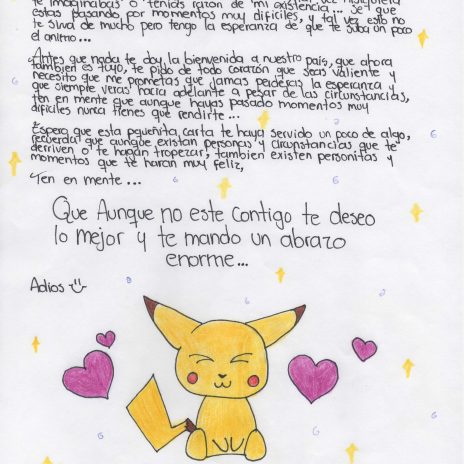 te imaginabas o tenias razón de mi existencia... se que
estas pasando por momentos muy dificiles, y tal vez esto no
te sirva de mucho pero tengo la esperanza de que te suba un poco
el animo...
Antes que nada te doy la bienvenida a nuestro país, que ahora
tambien es tuyo, te pido de todo corazón que seas valiente y
necesito que me prometas que jamas perderas la esperanza y
que siempre veras hacia adelante a pesar de las circunstancias,
ten en mente que aunque hayas pasado momentos muy
dificiles nunca tienes que rendirte...
Espero que esta pequeñita carta te haya servido un poco de algo,
recuerda que aunque existan personas y circunstancias que te
derriven o te hagan tropezar, tambien existen personitas y
momentos que te haran muy feliz,
Ten en mente...
Que Aunque no este contigo te deseo
lo mejor y te mando un abrazo
enorme...
Adios